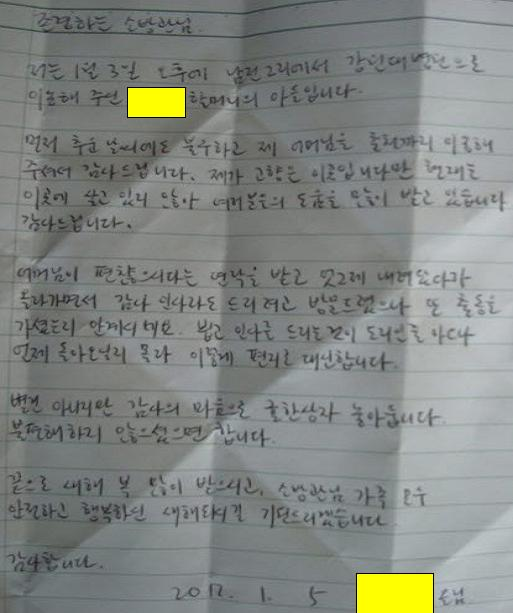 존경하는 소방관님.
저는 1월 3일 오후에 남전그리에서 강릉대병원으로
이송해 주신 할머니의 아들입니다.
먼저 추운 날씨에도 불구하고 제 어머님을 이송해
주셔서 감사드립니다. 제가 고향은 이곳입니다만 현재는
이곳에 살고 있지 않아 여러분들의 도움을 많이 받고 있습니다
감사드립니다.
어머님이 편찮으시다는 연락을 받고 엊그제 내려왔다가
올라가면서 감사 인사라도 드리려고 방문드렸으나 또 출동을
가셨는지 안계시네요. 뵙고 인사를 드리는것이 도리인줄 아오나
언제 돌아오실지 몰라 이렇게 편지로 대신합니다.
별건 아니지만 감사의 마음으로 귤한상자 놓아둡니다.
불편해하지 않으셨으면 합니다.
끝으로 새해 복 많이 받으시고, 소방관님 가족 모두
안전하고 행복하신 새해되시길 기원드리겠습니다
감사합니다.
2012. 1. 5 드림